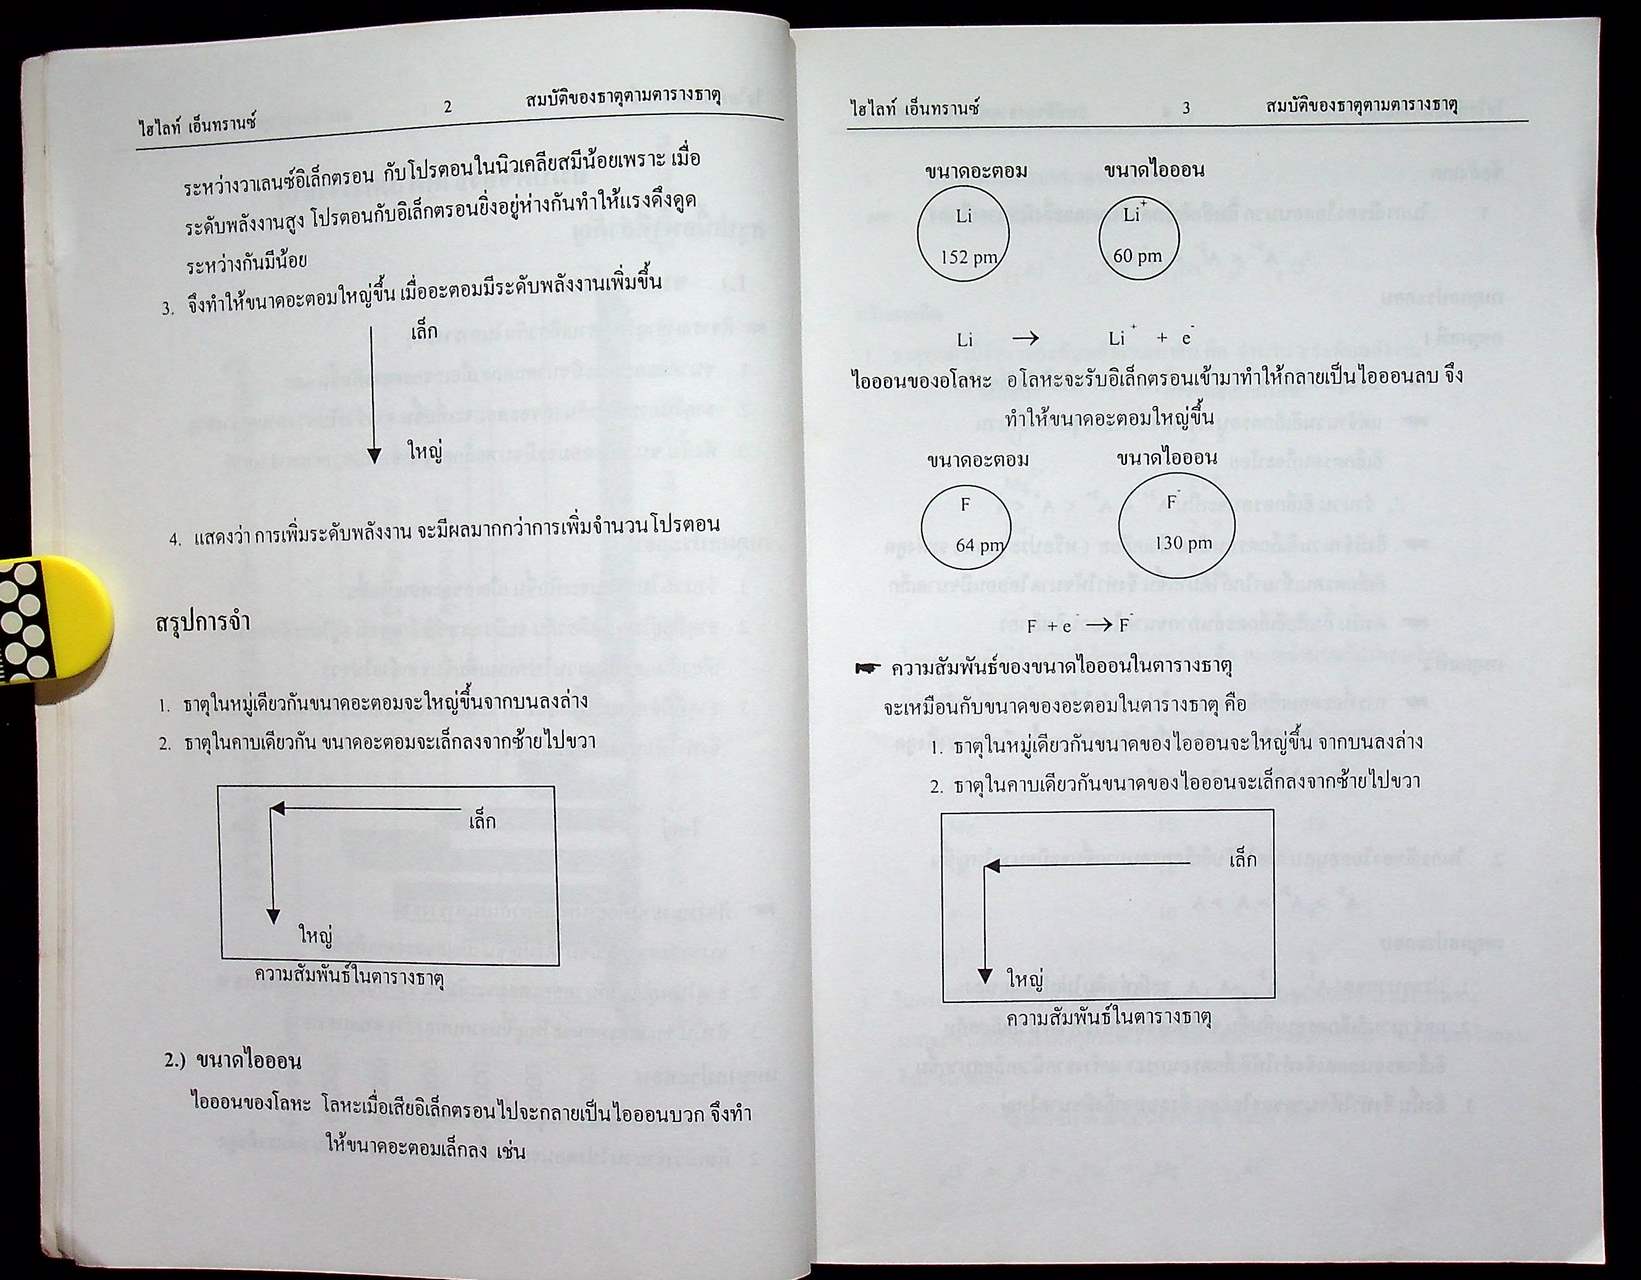 ไฮไลท์ เอ็นทรานซ์ 2 สมบัติของธาตุตามตารางธาตุ
ระหว่างวาเลนซ์อิเล็กตรอน กับโปรตอนในนิวเคลียสมีน้อยเพราะ เมื่อ
ระดับพลังงานสูง โปรตอนกับอิเล็กตรอนยิ่งอยู่ห่างกันทำให้แรงดึงดูด
ระหว่างกันมีน้อย
3. จึงทำให้ขนาดอะตอมใหญ่ขึ้น เมื่ออะตอมมีระดับพลังงานเพิ่มขึ้น
เล็ก
ใหญ่
4. แสดงว่า การเพิ่มระดับพลังงาน จะมีผลมากกว่าการเพิ่มจำนวนโปรตอน
สรุปการจำ
1. ธาตุในหมู่เดียวกันขนาดอะตอมจะใหญ่ขึ้นจากบนลงล่าง
2. ธาตุในคาบเดียวกัน ขนาดอะตอมจะเล็กลงจากซ้ายไปขวา
เล็ก
ใหญ่
ความสัมพันธ์ในตารางธาตุ
2.) ขนาดไอออน
ไอออนของโลหะ โลหะเมื่อเสียอิเล็กตรอนไปจะกลายเป็นไอออนบวก จึงทำ
ให้ขนาดอะตอมเล็กลง เช่น
ไฮไลท์ เอ็นทรานซ์ 3 สมบัติของธาตุตามตารางธาตุ
ขนาดอะตอม ขนาดไอออน
Li Li⁺
152 pm 60 pm
Li → Li⁺ + e⁻
ไอออนของอโลหะ อโลหะจะรับอิเล็กตรอนเข้ามาทำให้กลายเป็นไอออนลบ จึง
ทำให้ขนาดอะตอมใหญ่ขึ้น
ขนาดอะตอม ขนาดไอออน
F F⁻
64 pm 130 pm
F + e⁻ → F⁻
☛ ความสัมพันธ์ของขนาดไอออนในตารางธาตุ
จะเหมือนกับขนาดของอะตอมในตารางธาตุ คือ
1. ธาตุในหมู่เดียวกันขนาดของไอออนจะใหญ่ขึ้น จากบนลงล่าง
2. ธาตุในคาบเดียวกันขนาดของไอออนจะเล็กลงจากซ้ายไปขวา
เล็ก
ใหญ่
ความสัมพันธ์ในตารางธาตุ